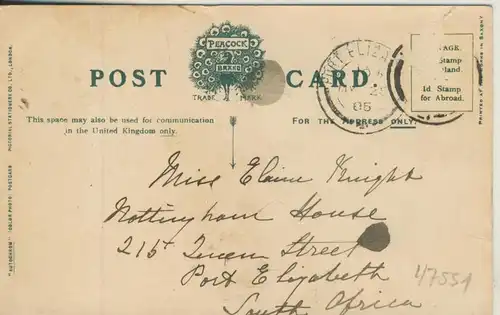 POST CARD.
PEACOCK
BRAND
TRADE MARK
This space may also be used for communication
in the United Kingdom only.
FOR THE ADDRESS ONLY.
PORT ELIZA
05
AGE.
Stamp
land.
1d Stamp
for Abroad.
Miss Elaine Knight
Nottingham House
215 Queen Street
Port Elizabeth
South Africa
47551
"AUTOCHROM" (COLOR PHOTO) POSTCARD
PICTORIAL STATIONERY CO., LTD., LONDON.
PRINTED AT IN SAXONY